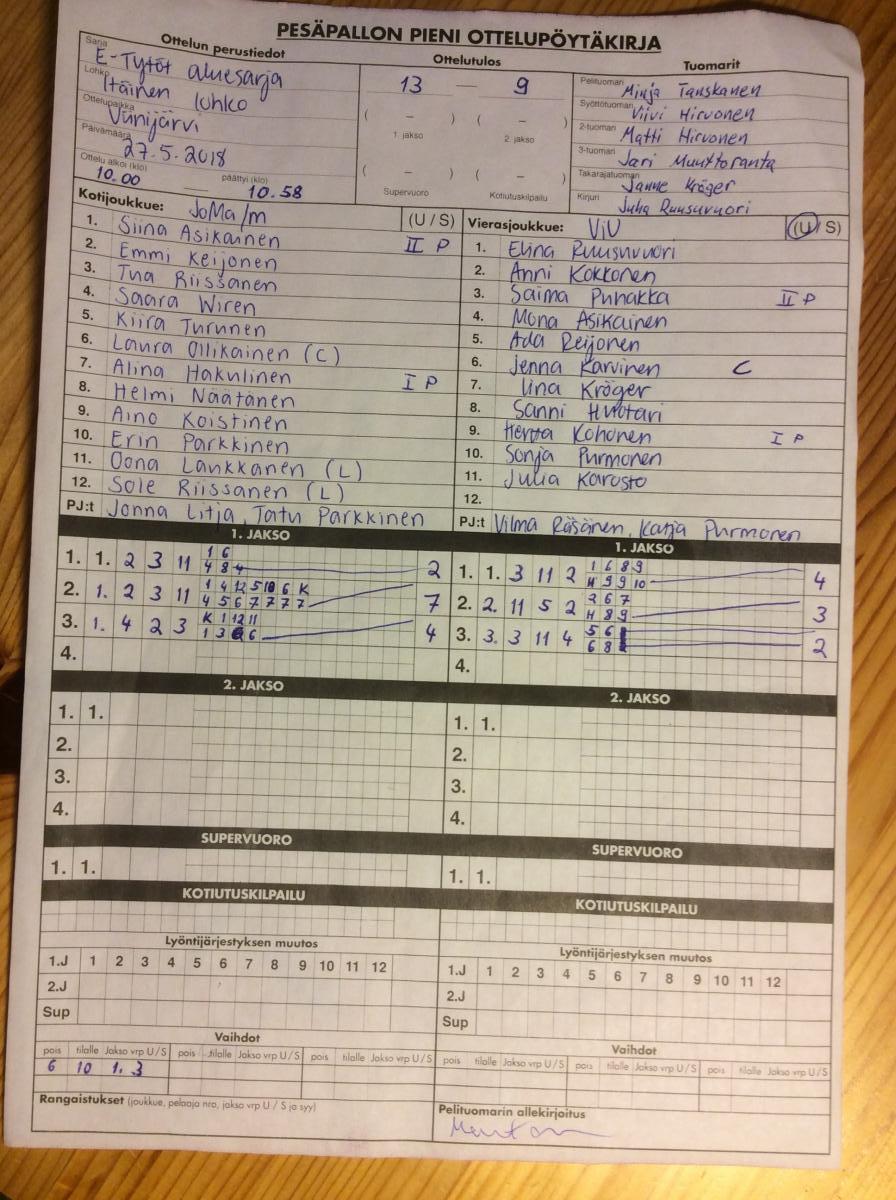 PESÄPALLON PIENI OTTELUPÖYTÄKIRJA
Ottelun perustiedot
Sarja E-Tytöt aluesarja
Lohko Itäinen lohko
Ottelupaikka Viinijärvi
Päivämäärä 27.5.2018
Ottelu alkoi (klo) päättyi (klo)
10.00 — 10.58
Ottelutulos
13 — 9
( – ) ( – )
1. jakso 2. jakso
( – ) ( – )
Supervuoro Kotiutuskilpailu
Tuomarit
Pelituomari Minja Tanskanen
Syöttötuomari Viivi Hirvonen
2-tuomari Matti Hirvonen
3-tuomari Jari Muuttoranta
Takarajatuomari Janne Kröger
Kirjuri Juha Ruusuvuori
Kotijoukkue: JoMa/m (U / S)
1. Siina Asikainen
2. Emmi Keijonen II P
3. Tua Riissanen
4. Saara Wiren
5. Kiira Turunen
6. Laura Ollikainen (C)
7. Alina Hakulinen
8. Helmi Näätänen I P
9. Aino Koistinen
10. Erin Parkkinen
11. Oona Laukkanen (L)
12. Sole Riissanen (L)
PJ:t Jonna Litja, Tatu Parkkinen
Vierasjoukkue: ViU (U / S)
1. Elina Ruusuvuori
2. Anni Kokkonen
3. Saima Puhakka II P
4. Mona Asikainen
5. Ada Reijonen
6. Jenna Karvinen C
7. Kröger
8. Sanni Huotari
9. Herta Kohonen I P
10. Sonja Purmonen
11. Julia Karosto
12.
PJ:t Vilma Räsänen, Katja Purmonen
1. JAKSO
1. 1. 2 3 11 1 6 2
4 8 4
2. 1. 2 3 11 1 4 12 5 10 6 K 7
4 5 6 7 7 7 7
3. 1. 4 2 3 K 1 12 11 4
1 3 6
4.
1. JAKSO
1. 1. 3 11 2 1 6 8 9 4
9 9 10
2. 2. 11 5 2 2 6 7 3
8 9
3. 3. 3 11 4 5 6 2
6 8
4.
2. JAKSO
1. 1.
2.
3.
4.
2. JAKSO
1. 1.
2.
3.
4.
SUPERVUORO
1. 1.
SUPERVUORO
1. 1.
KOTIUTUSKILPAILU
KOTIUTUSKILPAILU
Lyöntijärjestyksen muutos
1.J 1 2 3 4 5 6 7 8 9 10 11 12
2.J
Sup
Lyöntijärjestyksen muutos
1.J 1 2 3 4 5 6 7 8 9 10 11 12
2.J
Sup
Vaihdot
pois tilalle Jakso vrp U/S pois tilalle Jakso vrp U/S pois tilalle Jakso vrp U/S
6 10 1. 3
Vaihdot
pois tilalle Jakso vrp U/S pois tilalle Jakso vrp U/S pois tilalle Jakso vrp U/S
Rangaistukset (joukkue, pelaaja nro, jakso vrp U / S ja syy)
Pelituomarin allekirjoitus